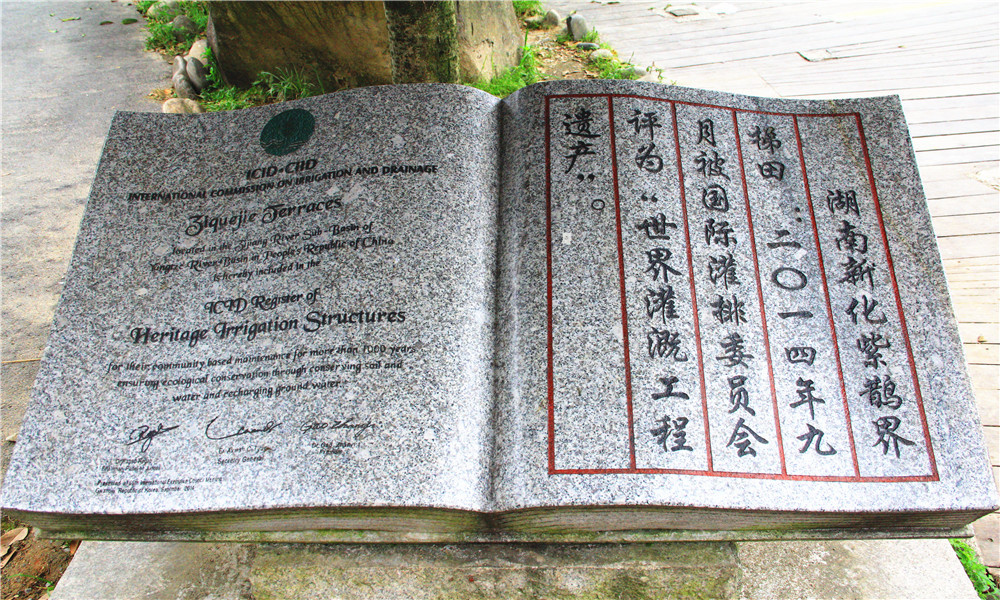 ICID•CIID
INTERNATIONAL COMMISSION ON IRRIGATION AND DRAINAGE
Ziquejie Terraces
located in the Zijiang River Sub - Basin of
Yangtze River Basin in People's Republic of China
is hereby included in the
ICID Register of
Heritage Irrigation Structures
for their community based maintenance for more than 1000 years
ensuring ecological conservation through conserving soil and
water and recharging ground water.
Secretary General
President
International Executive Council Meeting
Republic of Korea, 2014
湖南新化紫鹊界
梯田:二〇一四年九
月被国际灌排委员会
评为“世界灌溉工程
遗产”。